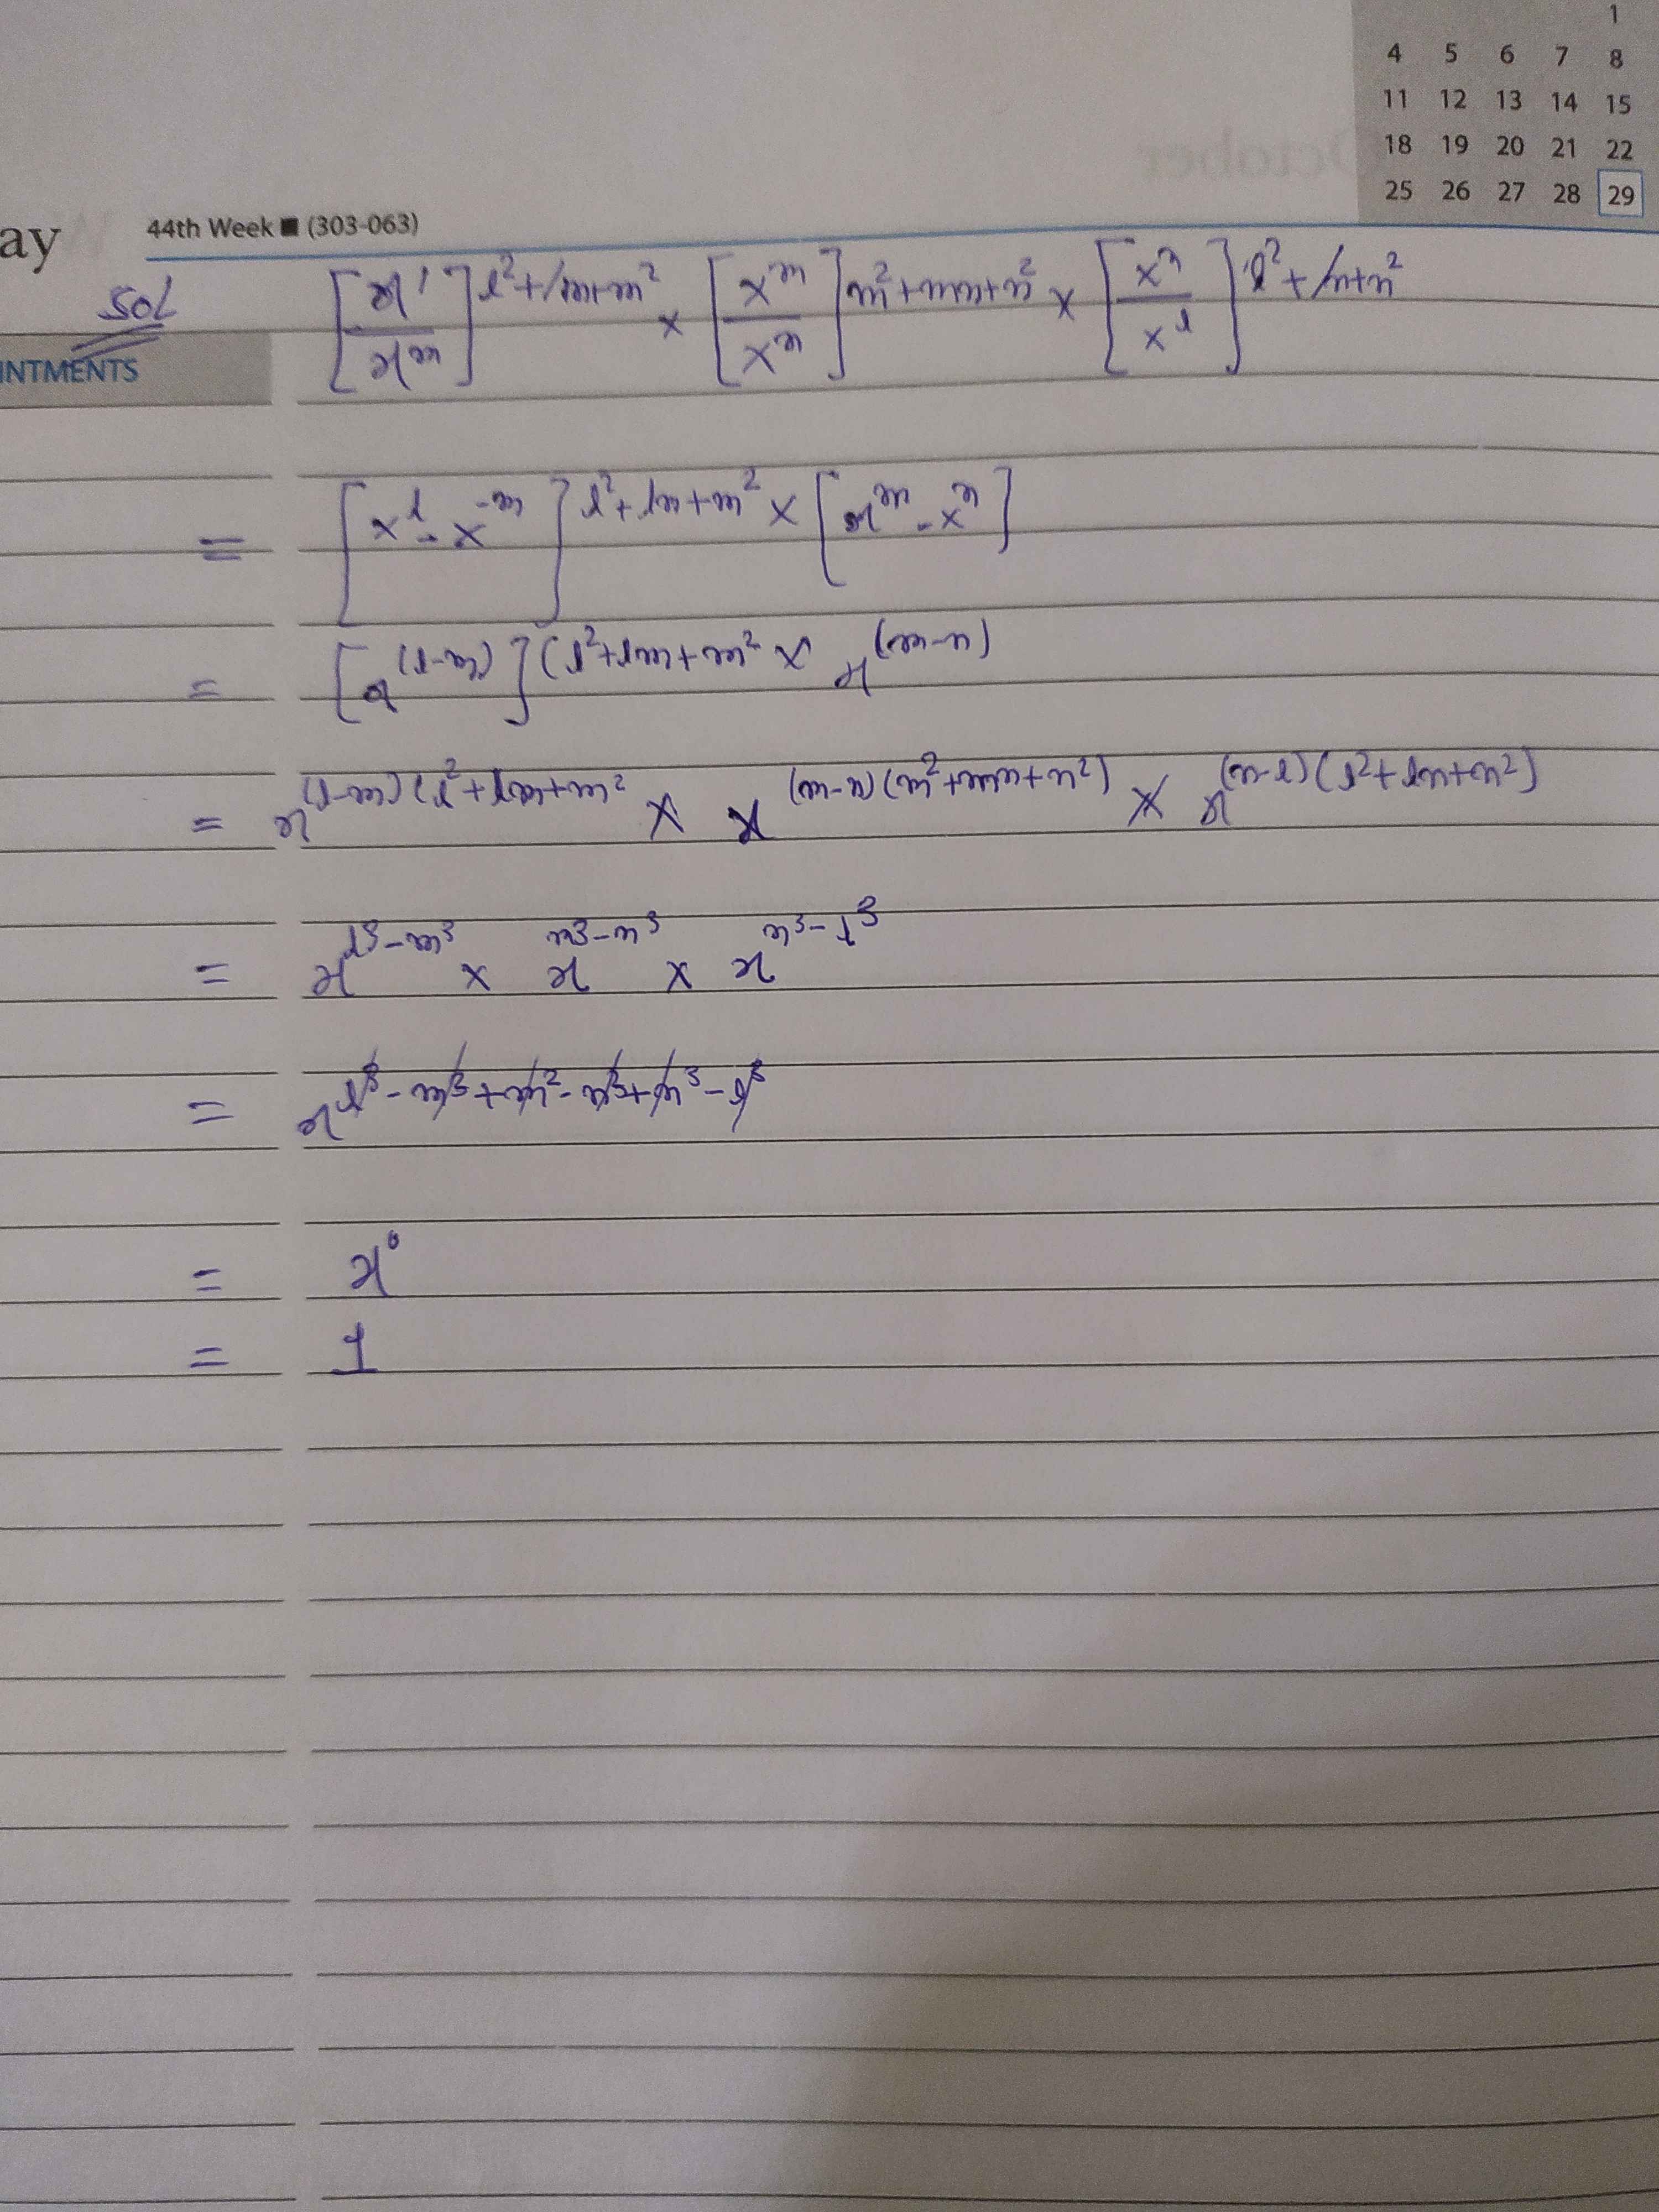 1
4 5 6 7 8
11 12 13 14 15
18 19 20 21 22
25 26 27 28 29
October
ay 44th Week ■ (303-063)
Sol [x^l / x^m]^l²+lm+m² × [x^m / x^n]^m²+mn+n² × [x^n / x^l]^l²+ln+n²
INTMENTS
= [x^l - x^-m]^l²+lm+m² × [x^m - x^n]
= [x^(l-m)]^(l²+lm+m² × x^(m-n)
= x^(l-m)(l²+lm+m² × x^(m-n)(m²+mn+n²) × x^(n-l)(l²+ln+n²)
= x^l³-m³ × x^m³-n³ × x^n³-l³
= x^l³-m³+m²-n³+n³-l³
= x⁰
= 1